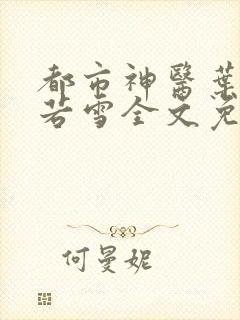 都市神醫葉
若雪全文免
何曼妮